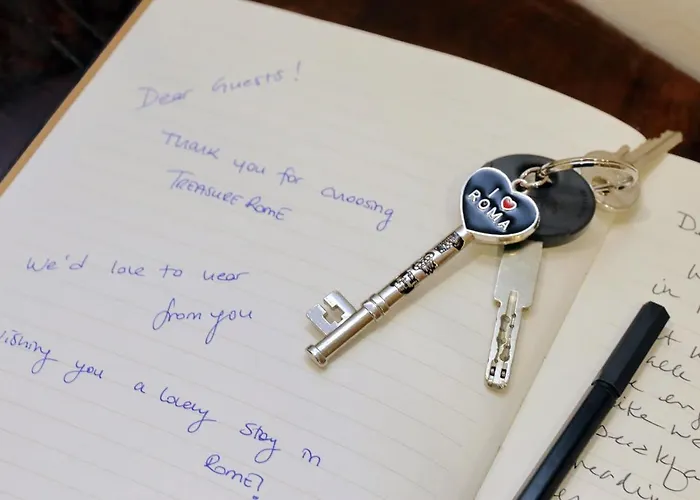 Dear Guests!
Thank you for choosing
TREASUREROME
We'd love to hear
from you
wishing you a lovely stay in
ROME!
I ♥
ROMA
in